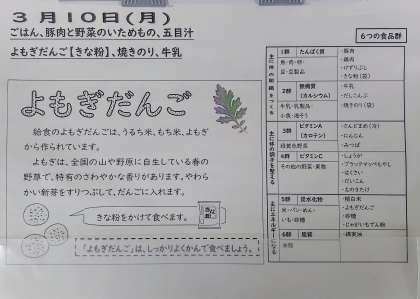 3月10日(月)
ごはん、豚肉と野菜のいためもの、五目汁
よもぎだんご【きな粉】、焼きのり、牛乳
よもぎだんご
給食のよもぎだんごは、うるち米、もち米、よもぎ
から作られています。
よもぎは、全国の山や野原に自生している春の
野草で、特有のさわやかな香りがあります。やわら
かい新芽をすりつぶして、だんごに入れます。
きな粉をかけて食べます。
「よもぎだんご」は、しっかりよくかんで食べましょう。
6つの食品群
1群 たんぱく質
魚・肉・卵・
豆・豆製品
・豚肉
・鶏肉
・けずりぶし
・きな粉(袋)
2群 無機質
(カルシウム)
牛乳・乳製品・
小魚・海そう
・牛乳
・だしこんぶ
・焼きのり(袋)
3群 ビタミンA
(カロテン)
緑黄色野菜
・にんじん
・みつば
4群 ビタミンC
その他の野菜・果物
・しょうが
・はくさい
・だいこん
・えのきたけ
5群 炭水化物
米・パン・めん・
いも・砂糖
・精白米
・よもぎだんご
・砂糖
・じゃがいもでん粉
6群 脂質
油脂